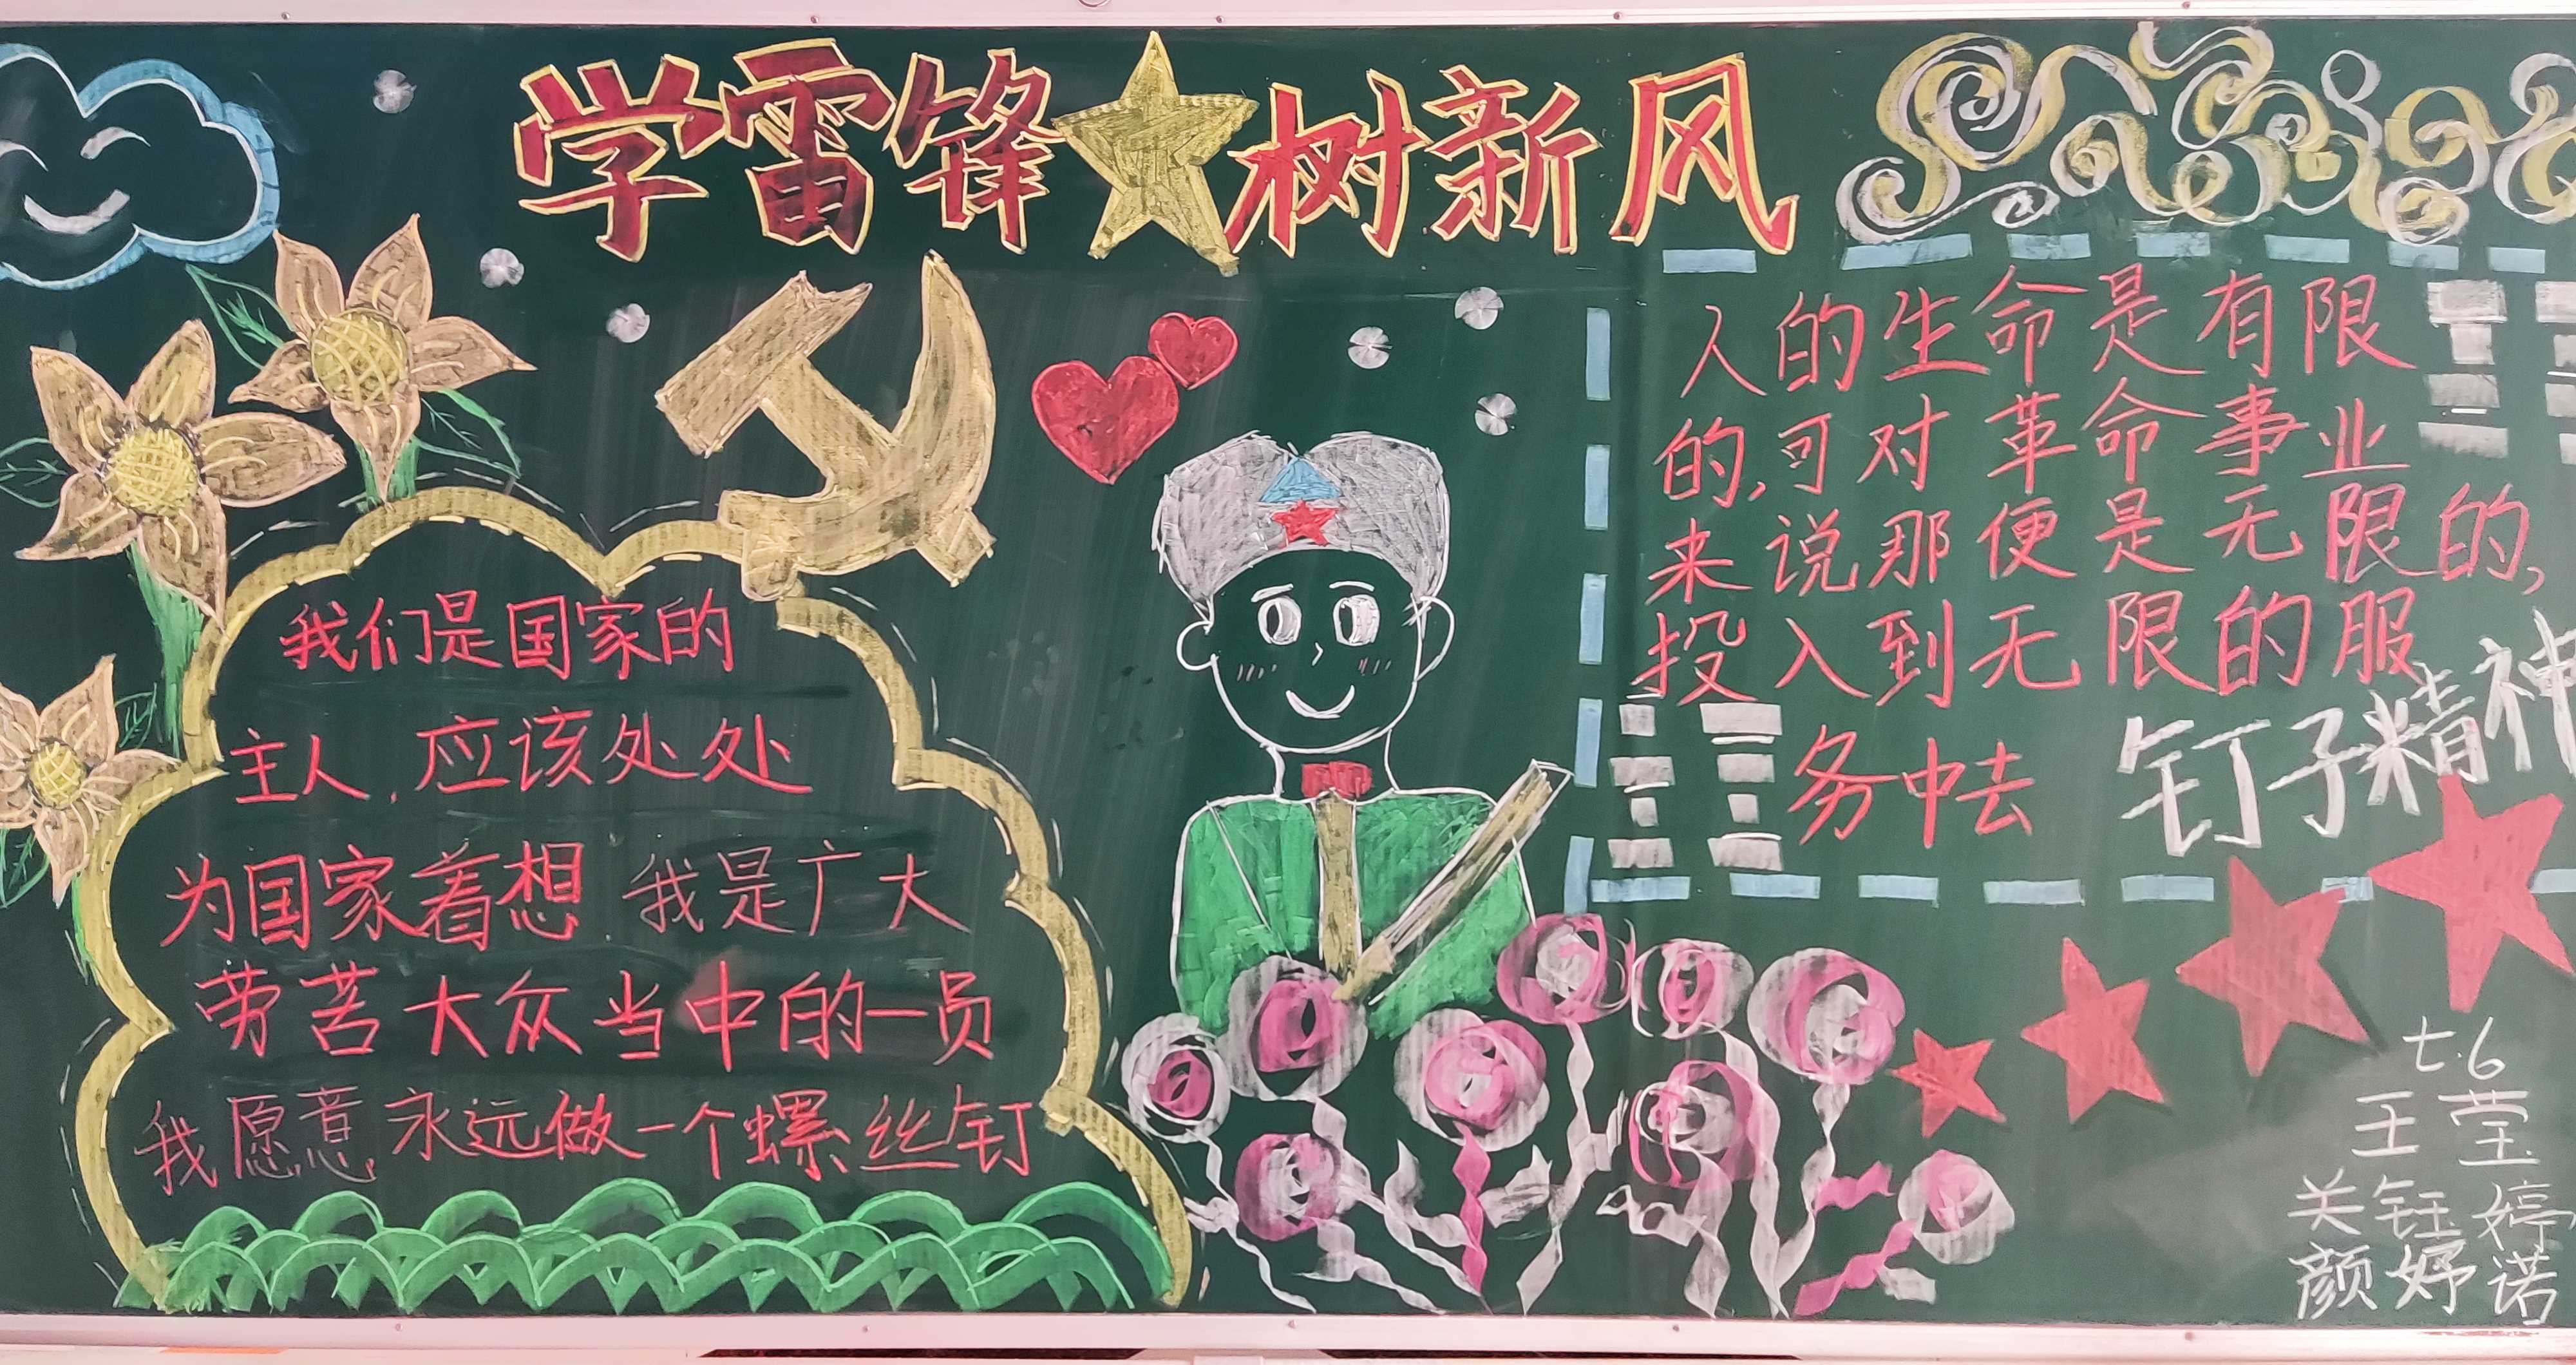 学雷锋★树新风
我们是国家的
主人,应该处处
为国家着想 我是广大
劳苦大众当中的一员
我愿意永远做一个螺丝钉
人的生命是有限
的,可对革命事业
来说那便是无限的,
投入到无限的服
务中去
钉子精神
七.6
王莹
关钰婷
颜妤诺